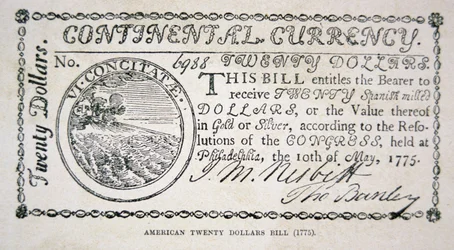 CONTINENTAL CURRENCY.
Twenty Dollars.
No. 6988 TWENTY DOLLARS.
VI CONCITATÆ.
THIS BILL entitles the Bearer to
receive TWENTY Spanish milled
DOLLARS, or the Value thereof
in Gold or Silver, according to the Reso-
lutions of the CONGRESS, held at
Philadelphia, the 10th of May, 1775.
J. M. Nesbitt
AMERICAN TWENTY DOLLARS BILL (1775).